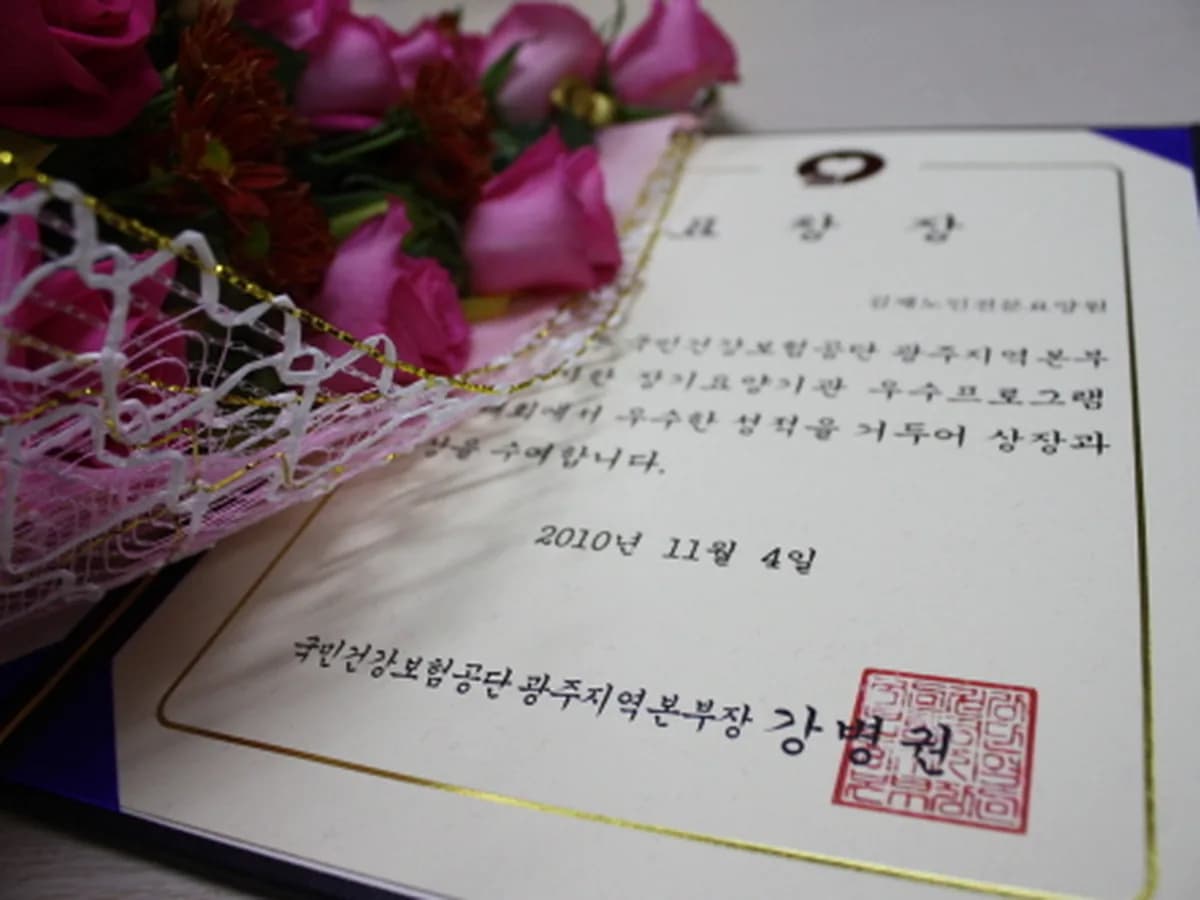 표 창 장
국민건강보험공단 광주지역본부
장기요양기관 우수프로그램
우수한 성적을 거두어 상장과
수여합니다.
2010년 11월 4일
국민건강보험공단 광주지역본부장 강병권